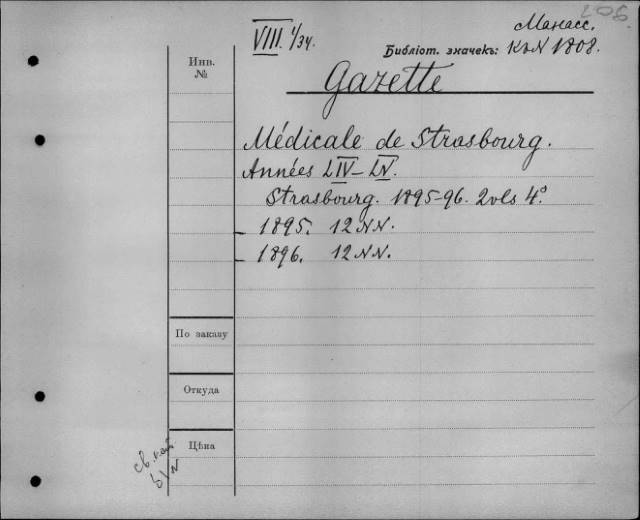 206.
Манасс.
VIII. 1/34.
Библіот. значекъ: К№ 1808.
Инв.
№
Gazette
Médicale de Strasbourg.
Années LIV–LV.
Strasbourg. 1895-96. 2 vls 4º.
1895. 12 NN.
1896. 12 NN.
По заказу
Откуда
Цѣна
св. каб.
б/N